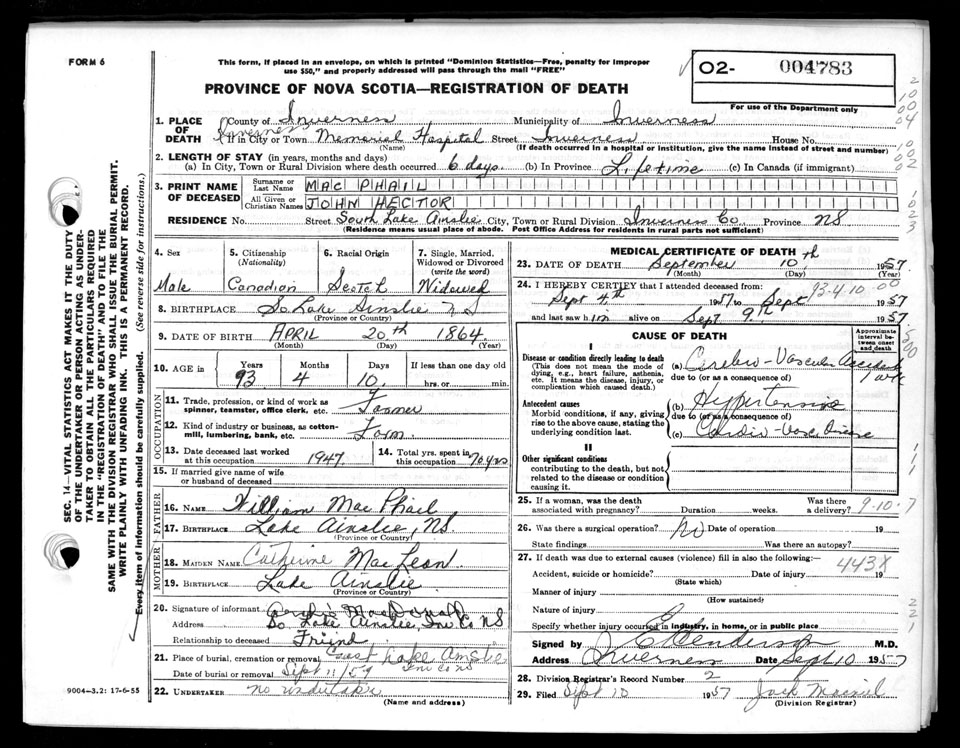 FORM 6
This form, if placed in an envelope, on which is printed "Dominion Statistics—Free, penalty for improper
use $50," and properly addressed will pass through the mail "FREE"
PROVINCE OF NOVA SCOTIA—REGISTRATION OF DEATH
O2- 004783
For use of the Department only
1. PLACE OF DEATH County of Inverness Municipality of Inverness
If in City or Town Inverness Memorial Hospital Street Inverness House No.
(Name) (If death occurred in a hospital or institution, give the name instead of street and number)
2. LENGTH OF STAY (in years, months and days)
(a) In City, Town or Rural Division where death occurred 6 days. (b) In Province Lifetime (c) In Canada (if immigrant)
3. PRINT NAME OF DECEASED Surname or Last Name MAC PHAIL
All Given or Christian Names JOHN HECTOR
RESIDENCE No. Street South Lake Ainslie City, Town or Rural Division Inverness Co. Province NS
(Residence means usual place of abode. Post Office Address for residents in rural parts not sufficient)
4. Sex Male
5. Citizenship (Nationality) Canadian
6. Racial Origin Scotch
7. Single, Married, Widowed or Divorced (write the word) Widowed
8. BIRTHPLACE So. Lake Ainslie N S
(Province or Country)
9. DATE OF BIRTH APRIL 20th 1864
(Month) (Day) (Year)
10. AGE in Years 93 Months 4 Days 10 If less than one day old hrs. or min.
OCCUPATION
11. Trade, profession, or kind of work as spinner, teamster, office clerk, etc. Farmer
12. Kind of industry or business, as cotton-mill, lumbering, bank, etc. Farm
13. Date deceased last worked at this occupation 1947
14. Total yrs. spent in this occupation 70 yrs
15. If married give name of wife or husband of deceased
FATHER
16. NAME William Mac Phail
17. BIRTHPLACE Lake Ainslie, NS
(Province or Country)
MOTHER
18. MAIDEN NAME Catherine Mac Lean
19. BIRTHPLACE Lake Ainslie
(Province or Country)
20. Signature of informant MacDonald
Address So. Lake Ainslie, Inv. Co NS
Relationship to deceased Friend
21. Place of burial, cremation or removal East Lake Ainslie
Inv Co NS
Date of burial or removal Sept 11/57
22. UNDERTAKER no undertaker
(Name and address)
MEDICAL CERTIFICATE OF DEATH
23. DATE OF DEATH September 10th 1957.
(Month) (Day) (Year)
24. I HEREBY CERTIFY that I attended deceased from:
Sept 4th 1957 to Sept 1957
93-4-10
and last saw him alive on Sept. 9th 1957.
CAUSE OF DEATH
Approximate interval between onset and death
I
Disease or condition directly leading to death
(This does not mean the mode of dying, e.g., heart failure, asthenia, etc. It means the disease, injury, or complication which caused death.)
(a) Cerebro-Vascular Accident 1 wk
due to (or as a consequence of)
Antecedent causes
Morbid conditions, if any, giving rise to the above cause, stating the underlying condition last.
(b) Hypertensive
due to (or as a consequence of)
(c) Cardio-Vasc Disease
II
Other significant conditions
contributing to the death, but not related to the disease or condition causing it.
25. If a woman, was the death associated with pregnancy? Duration weeks. Was there a delivery?
9-10-7
26. Was there a surgical operation? No Date of operation 19
State findings Was there an autopsy?
27. If death was due to external causes (violence) fill in also the following:—
443X
Accident, suicide or homicide? Date of injury 19
(State which)
Manner of injury
(How sustained)
Nature of injury
Specify whether injury occurred in industry, in home, or in public place
Signed by M.D.
Address Inverness Date Sept 10 1957
28. Division Registrar's Record Number 2
29. Filed Sept 10 1957 Jack
(Division Registrar)
SEC. 14—VITAL STATISTICS ACT MAKES IT THE DUTY
OF THE UNDERTAKER OR PERSON ACTING AS UNDER-
TAKER TO OBTAIN ALL THE PARTICULARS REQUIRED
IN THE "REGISTRATION OF DEATH" AND TO FILE THE
SAME WITH THE DIVISION REGISTRAR WHO SHALL ISSUE THE BURIAL PERMIT.
WRITE PLAINLY WITH UNFADING INK. THIS IS A PERMANENT RECORD.
Every item of information should be carefully supplied. (See reverse side for instructions.)
9004-3.2: 17-6-55